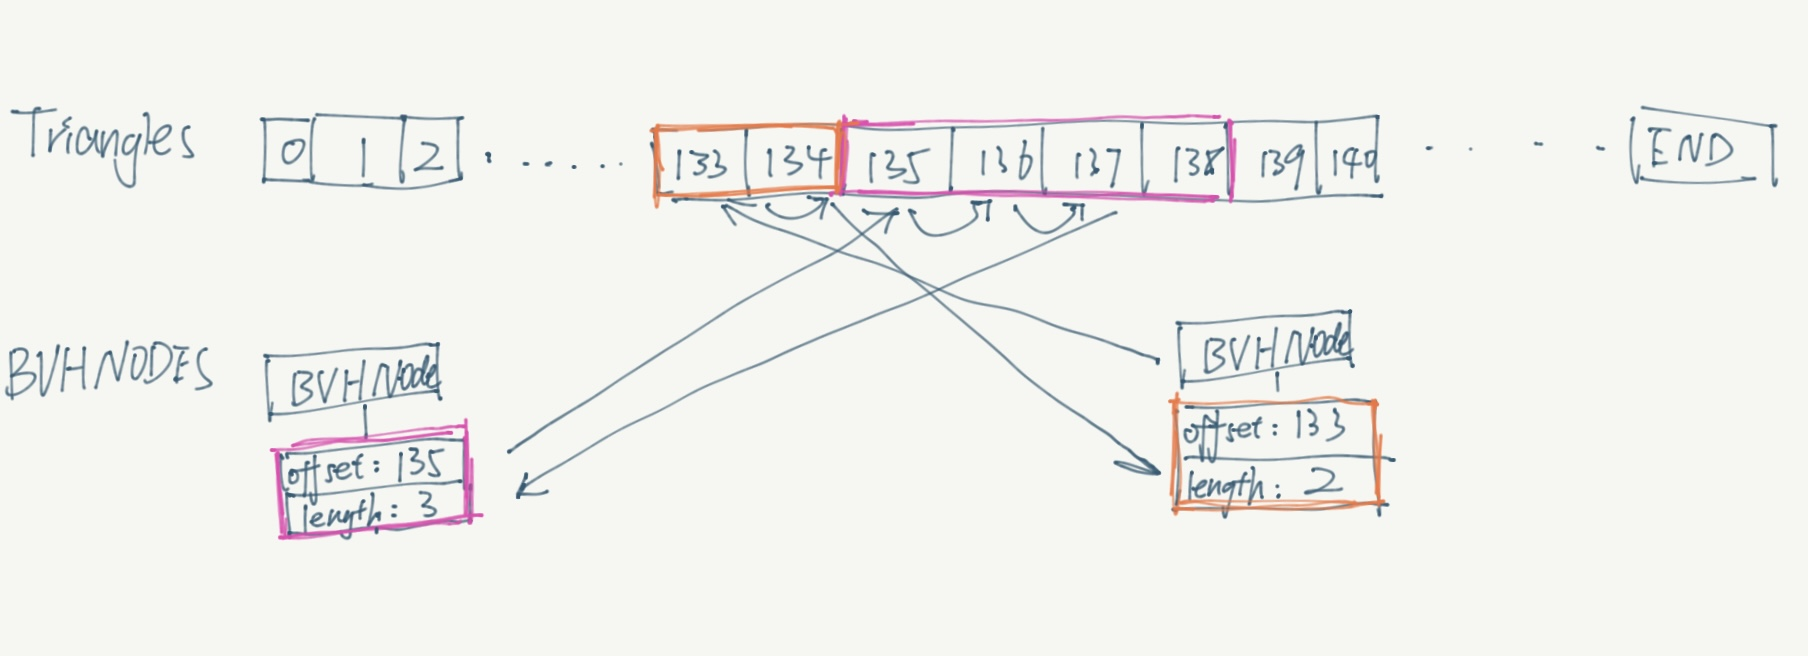 Triangles
0 1 2 . ..... 133 134 135 136 137 138 139 140 . . - . END
BVH NODES
BVH Node
offset: 135
length: 3
BVH Node
offset: 133
length: 2